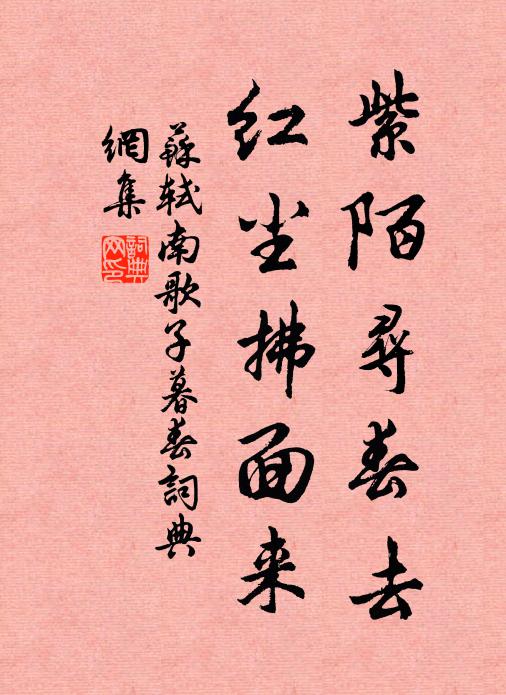 紫陌尋春去
红尘拂面来
蘇軾南歌子暮春詞典
網集
詞典
网印